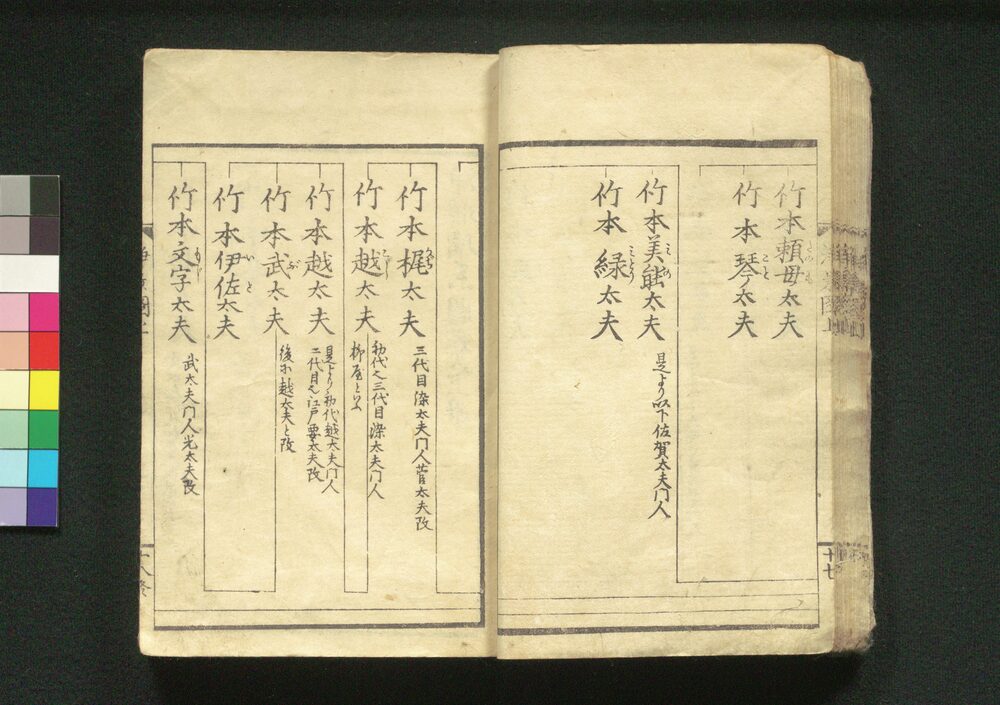 竹本頼母太夫
竹本琴太夫
こと
竹本美能太夫
みの
是より以下佐賀太夫門人
竹本緑太夫
みとり
十七
竹本梶太夫
かぢ
三代目染太夫門人菅太夫改
竹本越太夫
こし
初代ハ三代目染太夫門人
柳屋といふ
竹本越太夫
是より初代越太夫門人
二代目ハ江戸要太夫改
竹本武太夫
ぶ
後ニ越太夫と改
竹本伊佐太夫
いさ
竹本文字太夫
もじ
武太夫門人光太夫改